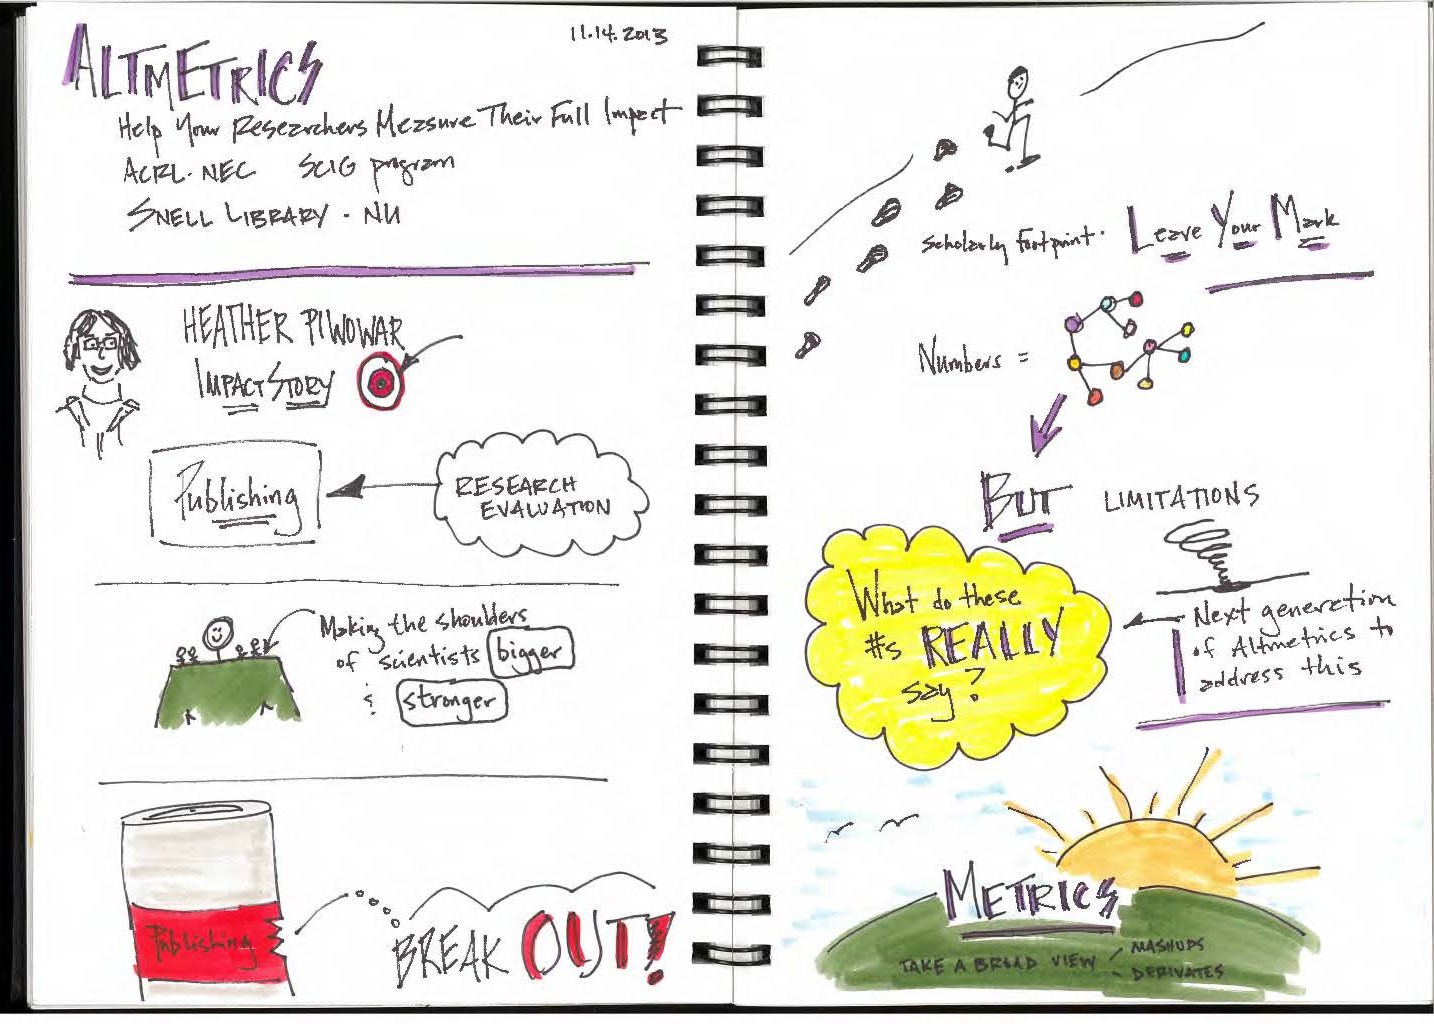 ALTMETRICS
11.14.2013
Help Your Researchers Measure Their Full Impact
ACRL·NEC SCIG program
SNELL LIBRARY · NU
HEATHER PIWOWAR
IMPACTSTORY
Publishing
RESEARCH
EVALUATION
Making the shoulders
of scientists bigger
& stronger
Publishing
BREAK OUT!
Scholarly footprint · Leave Your Mark
Numbers =
BUT LIMITATIONS
What do these
#s REALLY
say?
Next generation
of Altmetrics to
address this
METRICS
TAKE A BROAD VIEW
- MASHUPS
- DERIVATES